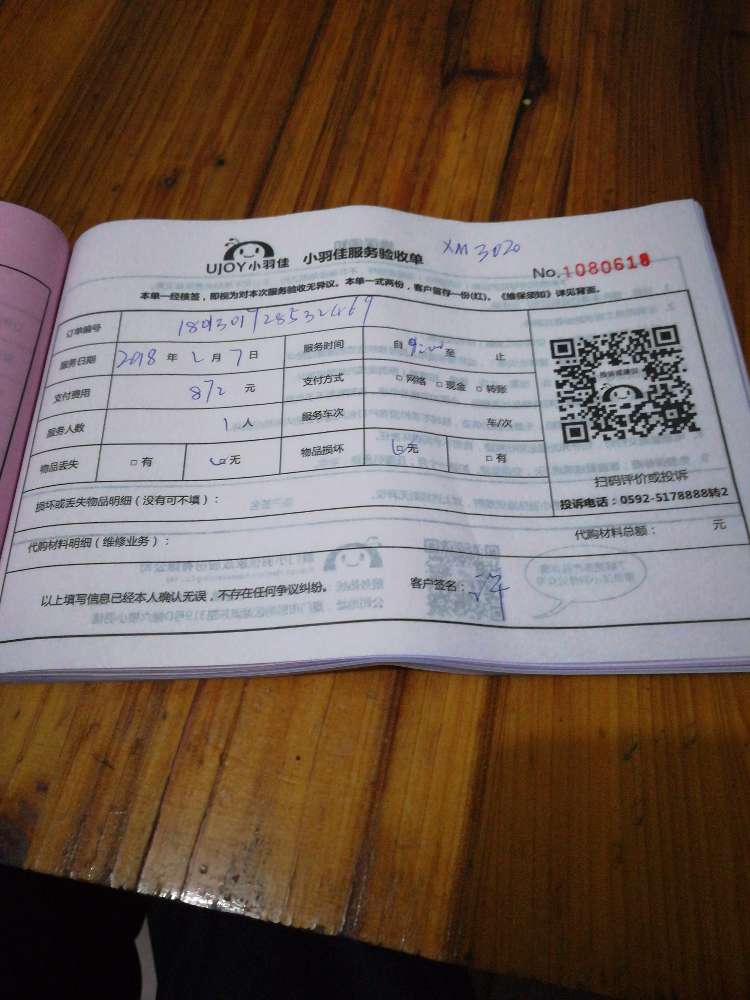 UJOY小羽佳 小羽佳服务验收单 XM3020
No.1080618
本单一经核签，即视为对本次服务验收无异议。本单一式两份，客户留存一份(红)。《维保须知》详见背面。
订单编号
服务日期 2018 年 2 月 7 日 服务时间 自 9:00 至 止
支付费用 872 元 支付方式 □ 网络 □ 现金 □ 转账
服务人数 1 人 服务车次 车/次
物品丢失 □ 有 □ 无 物品损坏 □ 无 □ 有
扫码评价或投诉
投诉电话：0592-5178888转2
损坏或丢失物品明细（没有可不填）：
代购材料明细（维修业务）： 代购材料总额： 元
以上填写信息已经本人确认无误，不存在任何争议纠纷。 客户签名：